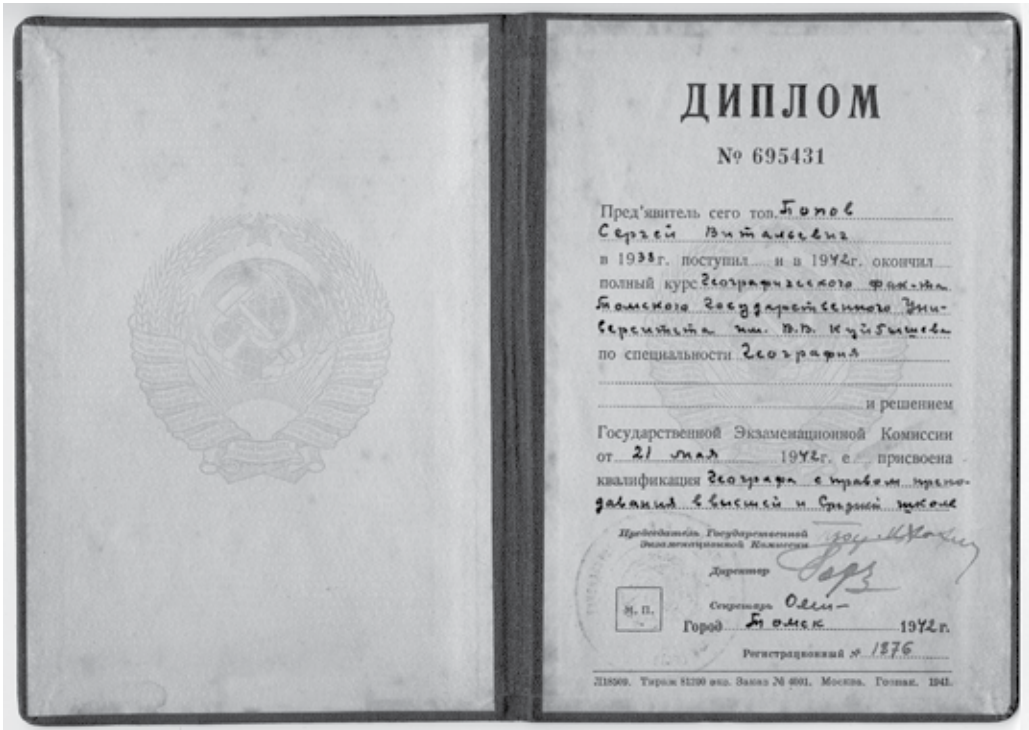 ДИПЛОМ
№ 695431
Пред'явитель сего тов. Попов
Сергей Витальевич
в 1938г. поступил и в 1942г. окончил
полный курс Географического фак-та
Томского Государственного Уни-
верситета им. В.В. Куйбышева
по специальности География
и решением
Государственной Экзаменационной Комиссии
от 21 мая 1942г. е присвоена
квалификация Географа с правом препо-
давания в высшей и средней школе
Председатель Государственной
Экзаменационной Комиссии
Директор
Секретарь
М. П.
Город Томск 1942г.
Регистрационный № 1376
Тираж 81200 экз. Заказ № 4001. Москва. Гознак. 1941.